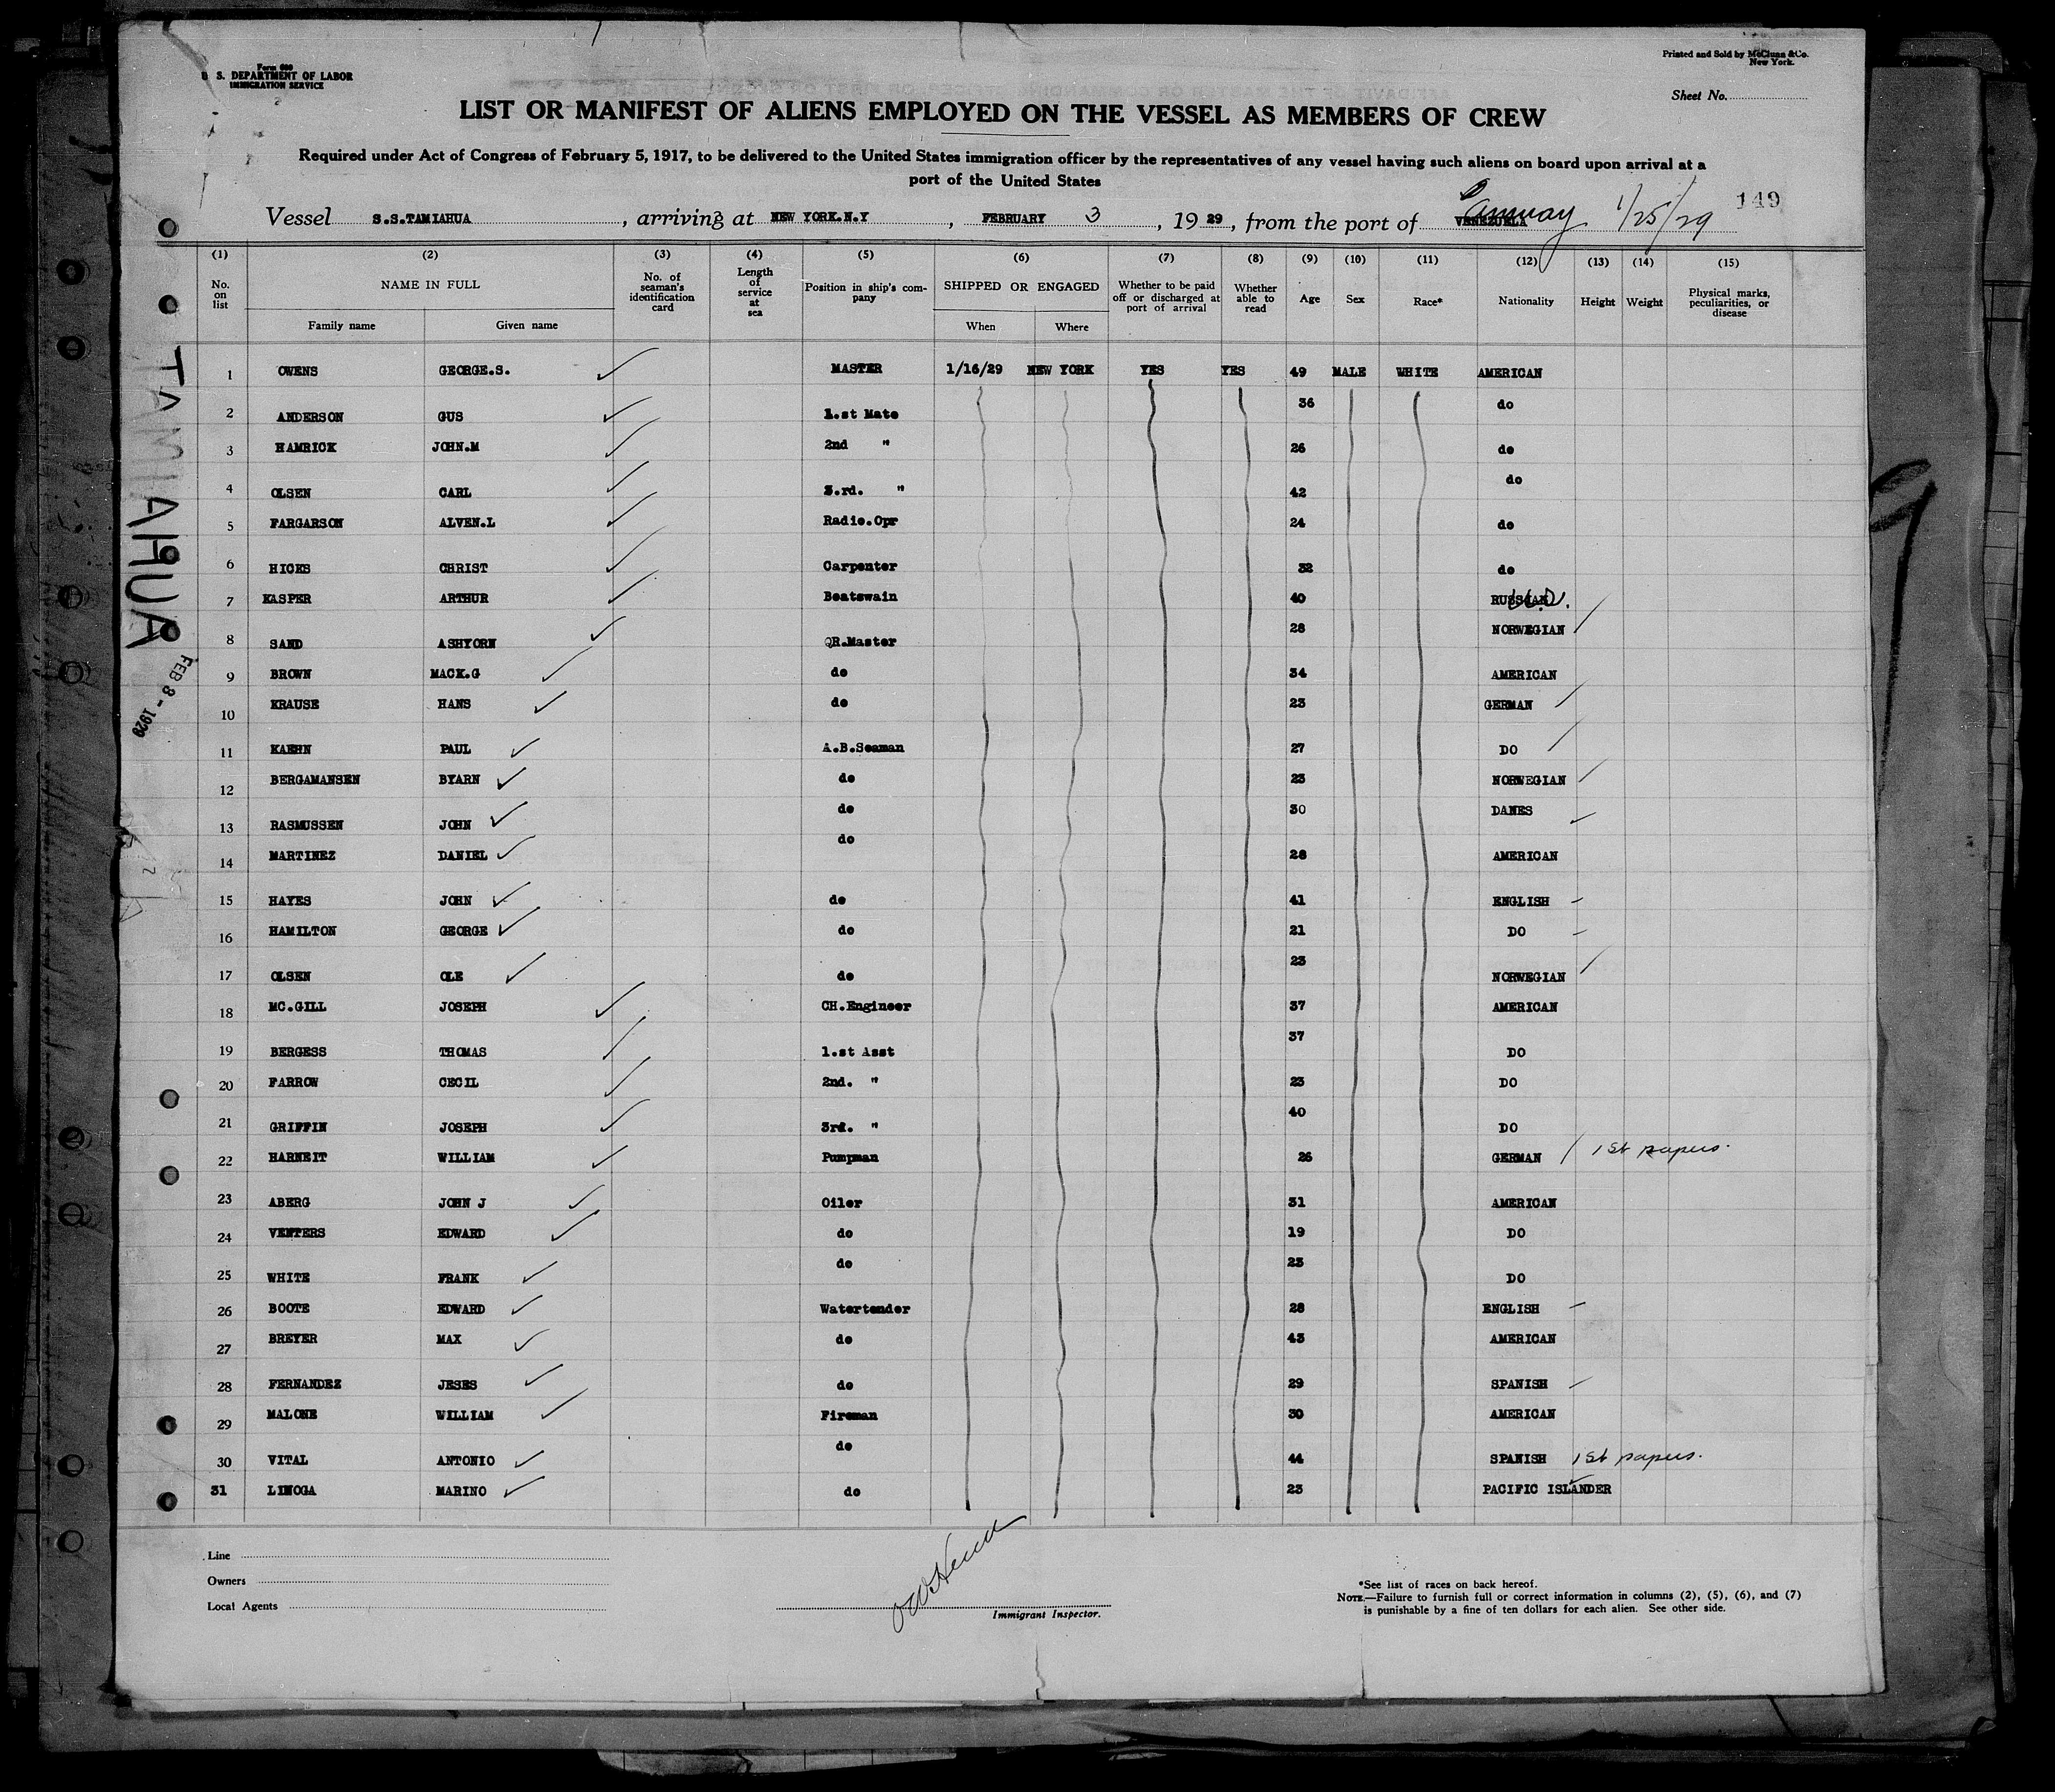 Form 680
U. S. DEPARTMENT OF LABOR
IMMIGRATION SERVICE
Printed and Sold by McClunn & Co.
New York.
Sheet No.
LIST OR MANIFEST OF ALIENS EMPLOYED ON THE VESSEL AS MEMBERS OF CREW
Required under Act of Congress of February 5, 1917, to be delivered to the United States immigration officer by the representatives of any vessel having such aliens on board upon arrival at a
port of the United States
149
Vessel S.S.TAMIAHUA, arriving at NEW YORK.N.Y, FEBRUARY 3, 19 29, from the port of VENEZUELA 1/25/29
(1) (2) (3) (4) (5) (6) (7) (8) (9) (10) (11) (12) (13) (14) (15)
No. on list NAME IN FULL Family name Given name No. of seaman's identification card Length of service at sea Position in ship's company SHIPPED OR ENGAGED When Where Whether to be paid off or discharged at port of arrival Whether able to read Age Sex Race* Nationality Height Weight Physical marks, peculiarities, or disease
1 OWENS GEORGE.S. MASTER 1/16/29 NEW YORK YES YES 49 MALE WHITE AMERICAN
2 ANDERSON GUS 1.st Mate 36 do
3 HAMRICK JOHN.M 2nd " 26 do
4 OLSEN CARL 3.rd. " 42 do
5 FARGARSON ALVEN.L Radio.Opr 24 do
6 HICKS CHRIST Carpenter 32 do
7 KASPER ARTHUR Boatswain 40 RUSSIAN
8 SAND ASHYORN QR.Master 28 NORWEGIAN
9 BROWN MACK.G do 34 AMERICAN
10 KRAUSE HANS do 23 GERMAN
11 KAEHN PAUL A.B.Seaman 27 DO
12 BERGAMANSEN BYARN do 23 NORWEGIAN
13 RASMUSSEN JOHN do 30 DANES
14 MARTINEZ DANIEL do 28 AMERICAN
15 HAYES JOHN do 41 ENGLISH
16 HAMILTON GEORGE do 21 DO
17 OLSEN OLE do 23 NORWEGIAN
18 MC.GILL JOSEPH CH.Engineer 37 AMERICAN
19 BERGESS THOMAS 1.st Asst 37 DO
20 FARROW CECIL 2nd. " 23 DO
21 GRIFFIN JOSEPH 3rd. " 40 DO
22 HARNEIT WILLIAM Pumpman 26 GERMAN 1st papers.
23 ABERG JOHN J Oiler 31 AMERICAN
24 VENTERS EDWARD do 19 DO
25 WHITE FRANK do 23 DO
26 BOOTE EDWARD Watertender 28 ENGLISH
27 BREYER MAX do 43 AMERICAN
28 FERNANDEZ JESES do 29 SPANISH
29 MALONE WILLIAM Fireman 30 AMERICAN
30 VITAL ANTONIO do 44 SPANISH 1st papers.
31 LINOGA MARINO do 23 PACIFIC ISLANDER
TAMIAHUA
FEB 8 - 1929
Line
Owners
Local Agents
Immigrant Inspector.
*See list of races on back hereof.
NOTE.—Failure to furnish full or correct information in columns (2), (5), (6), and (7)
is punishable by a fine of ten dollars for each alien. See other side.